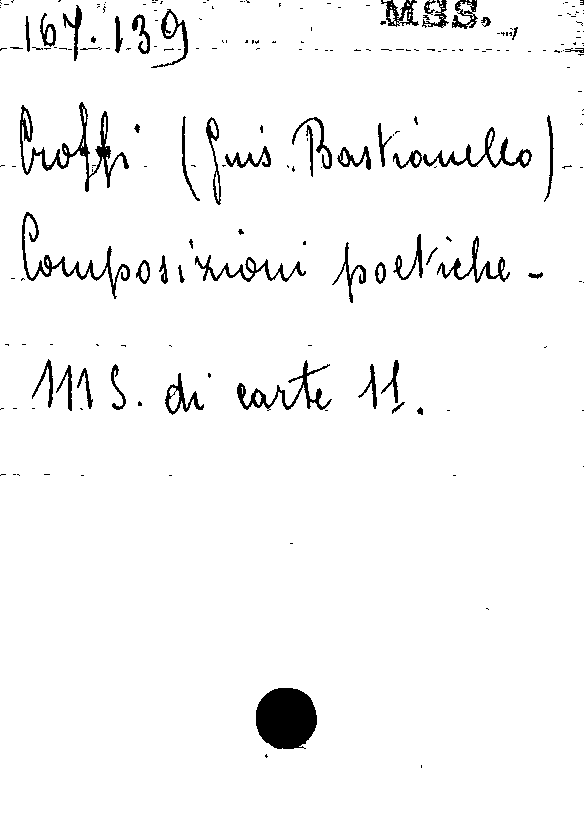 167.139
MSS.
Croffi (Gius. Bastianello)
Composizioni poetiche -
MS. di carte 11.